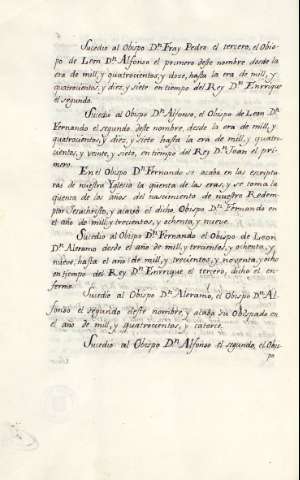 Sucedio al Obispo Dⁿ. Fray Pedro el tercero, el Obis-
po de Leon Dⁿ. Alfonso el primero deste nombre desde la
era de mill, y quatrocientos, y doze, hasta la era de mill, y
quatrocientos, y diez, y siete en tiempo del Rey Dⁿ. Enrrique
el segundo.
Sucedio al Obispo Dⁿ. Alfonso, el Obispo de Leon Dⁿ.
Fernando el segundo deste nombre, desde la era de mill, y
quatrocientos, y diez, y siete hasta la era de mill, y quatro-
cientos, y veinte, y siete, en tiempo del Rey Dⁿ. Joan el pri-
mero.
En el Obispo Dⁿ. Fernando se acaba en las escriptu
ras de nuestra Yglesia la quenta de las eras, y se toma la
quenta de los años del nascimiento de nuestro Redemp
tor Jesuchristo, y acavó el dicho Obispo Dⁿ. Fernando en
el año de mill, y trecientos, y ochenta, y nueve.
Sucedio al Obispo Dⁿ. Fernando el Obispo de Leon
Dⁿ. Aleramo desde el año de mill, y trecientos, y ochenta, y
nueve, hasta el año de mill, y trecientos, y noventa, y ocho
en tiempo del Rey Dⁿ. Enrrique el tercero, dicho el en-
fermo.
Sucedio al Obispo Dⁿ. Aleramo, el Obispo Dⁿ. Al-
fonso el segundo deste nombre, y acaba su Obispado en
el año de mill, y quatrocientos, y catorce.
Sucedio al Obispo Dⁿ. Alfonso el segundo, el Obis-
po